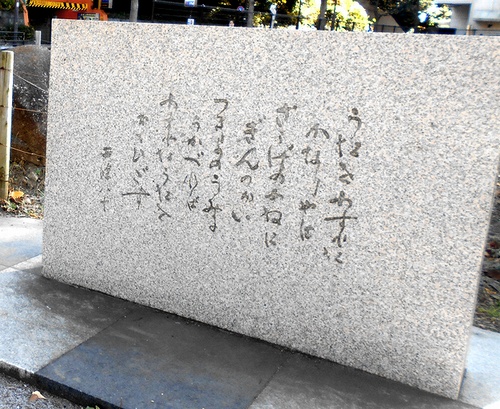 うたをわすれた
かなりやは
ぞうげのふねに
ぎんのかい
つきよのうみに
うかべれば
わすれたうたを
おもひだす
西條八十